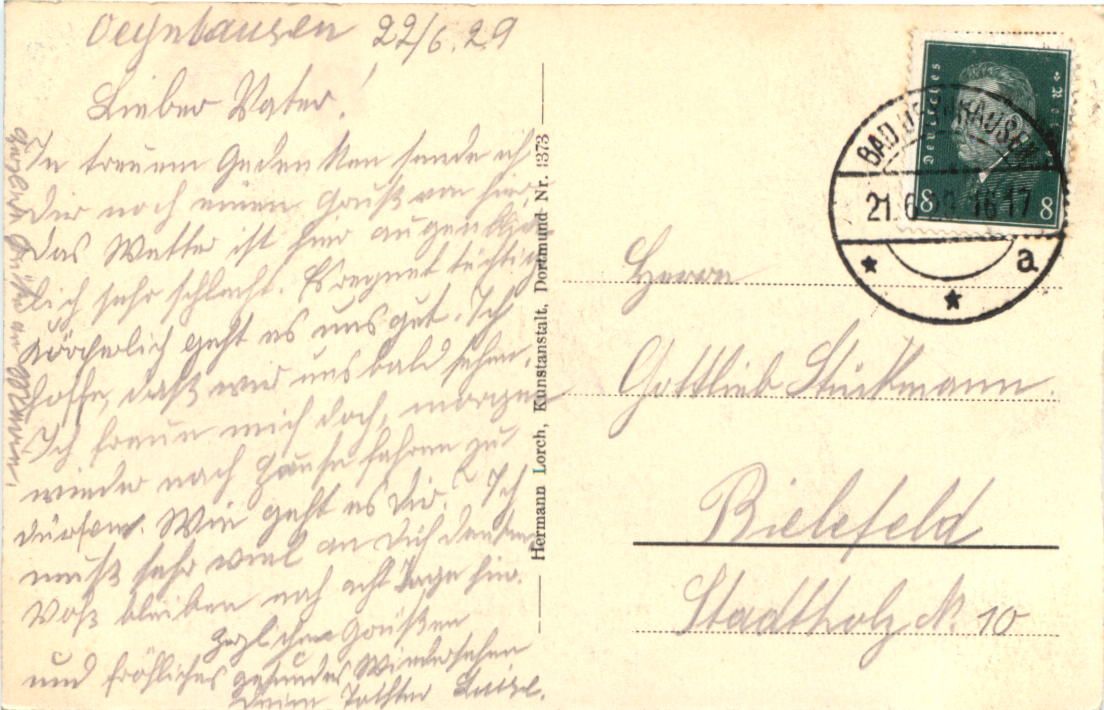 Oeynhausen 22/6.29
Lieber Vater!
In treuem Gedenken sende ich
Dir noch einen Gruß von hier.
Das Wetter ist hier augenblick-
lich sehr schlecht. Es regnet tüchtig.
Körperlich geht es uns gut. Ich
hoffe, daß wir uns bald sehen.
Ich freue mich doch, morgen
wieder nach Hause fahren zu
dürfen. Wie geht es Dir? Ich
muß sehr viel an Dich denken
Voß bleiben noch acht Tage hier.
Herzliche Grüßen
und fröhliches gesundes Wiedersehen
Deine Tochter Luise.
Herzliche Grüße
Hermann Lorch, Kunstanstalt, Dortmund Nr. 1373
Deutsches
8 8
BAD OEYNHAUSEN
21.6.29 16-17
a
Herrn
Gottlieb Stückmann.
Bielefeld
Stadtholz N. 10